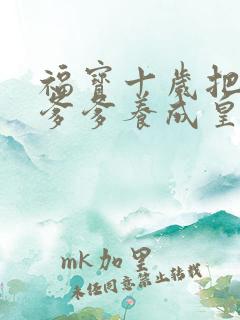 福寶十歲把
爹爹養成皇
mk加里
未经同意禁止转载